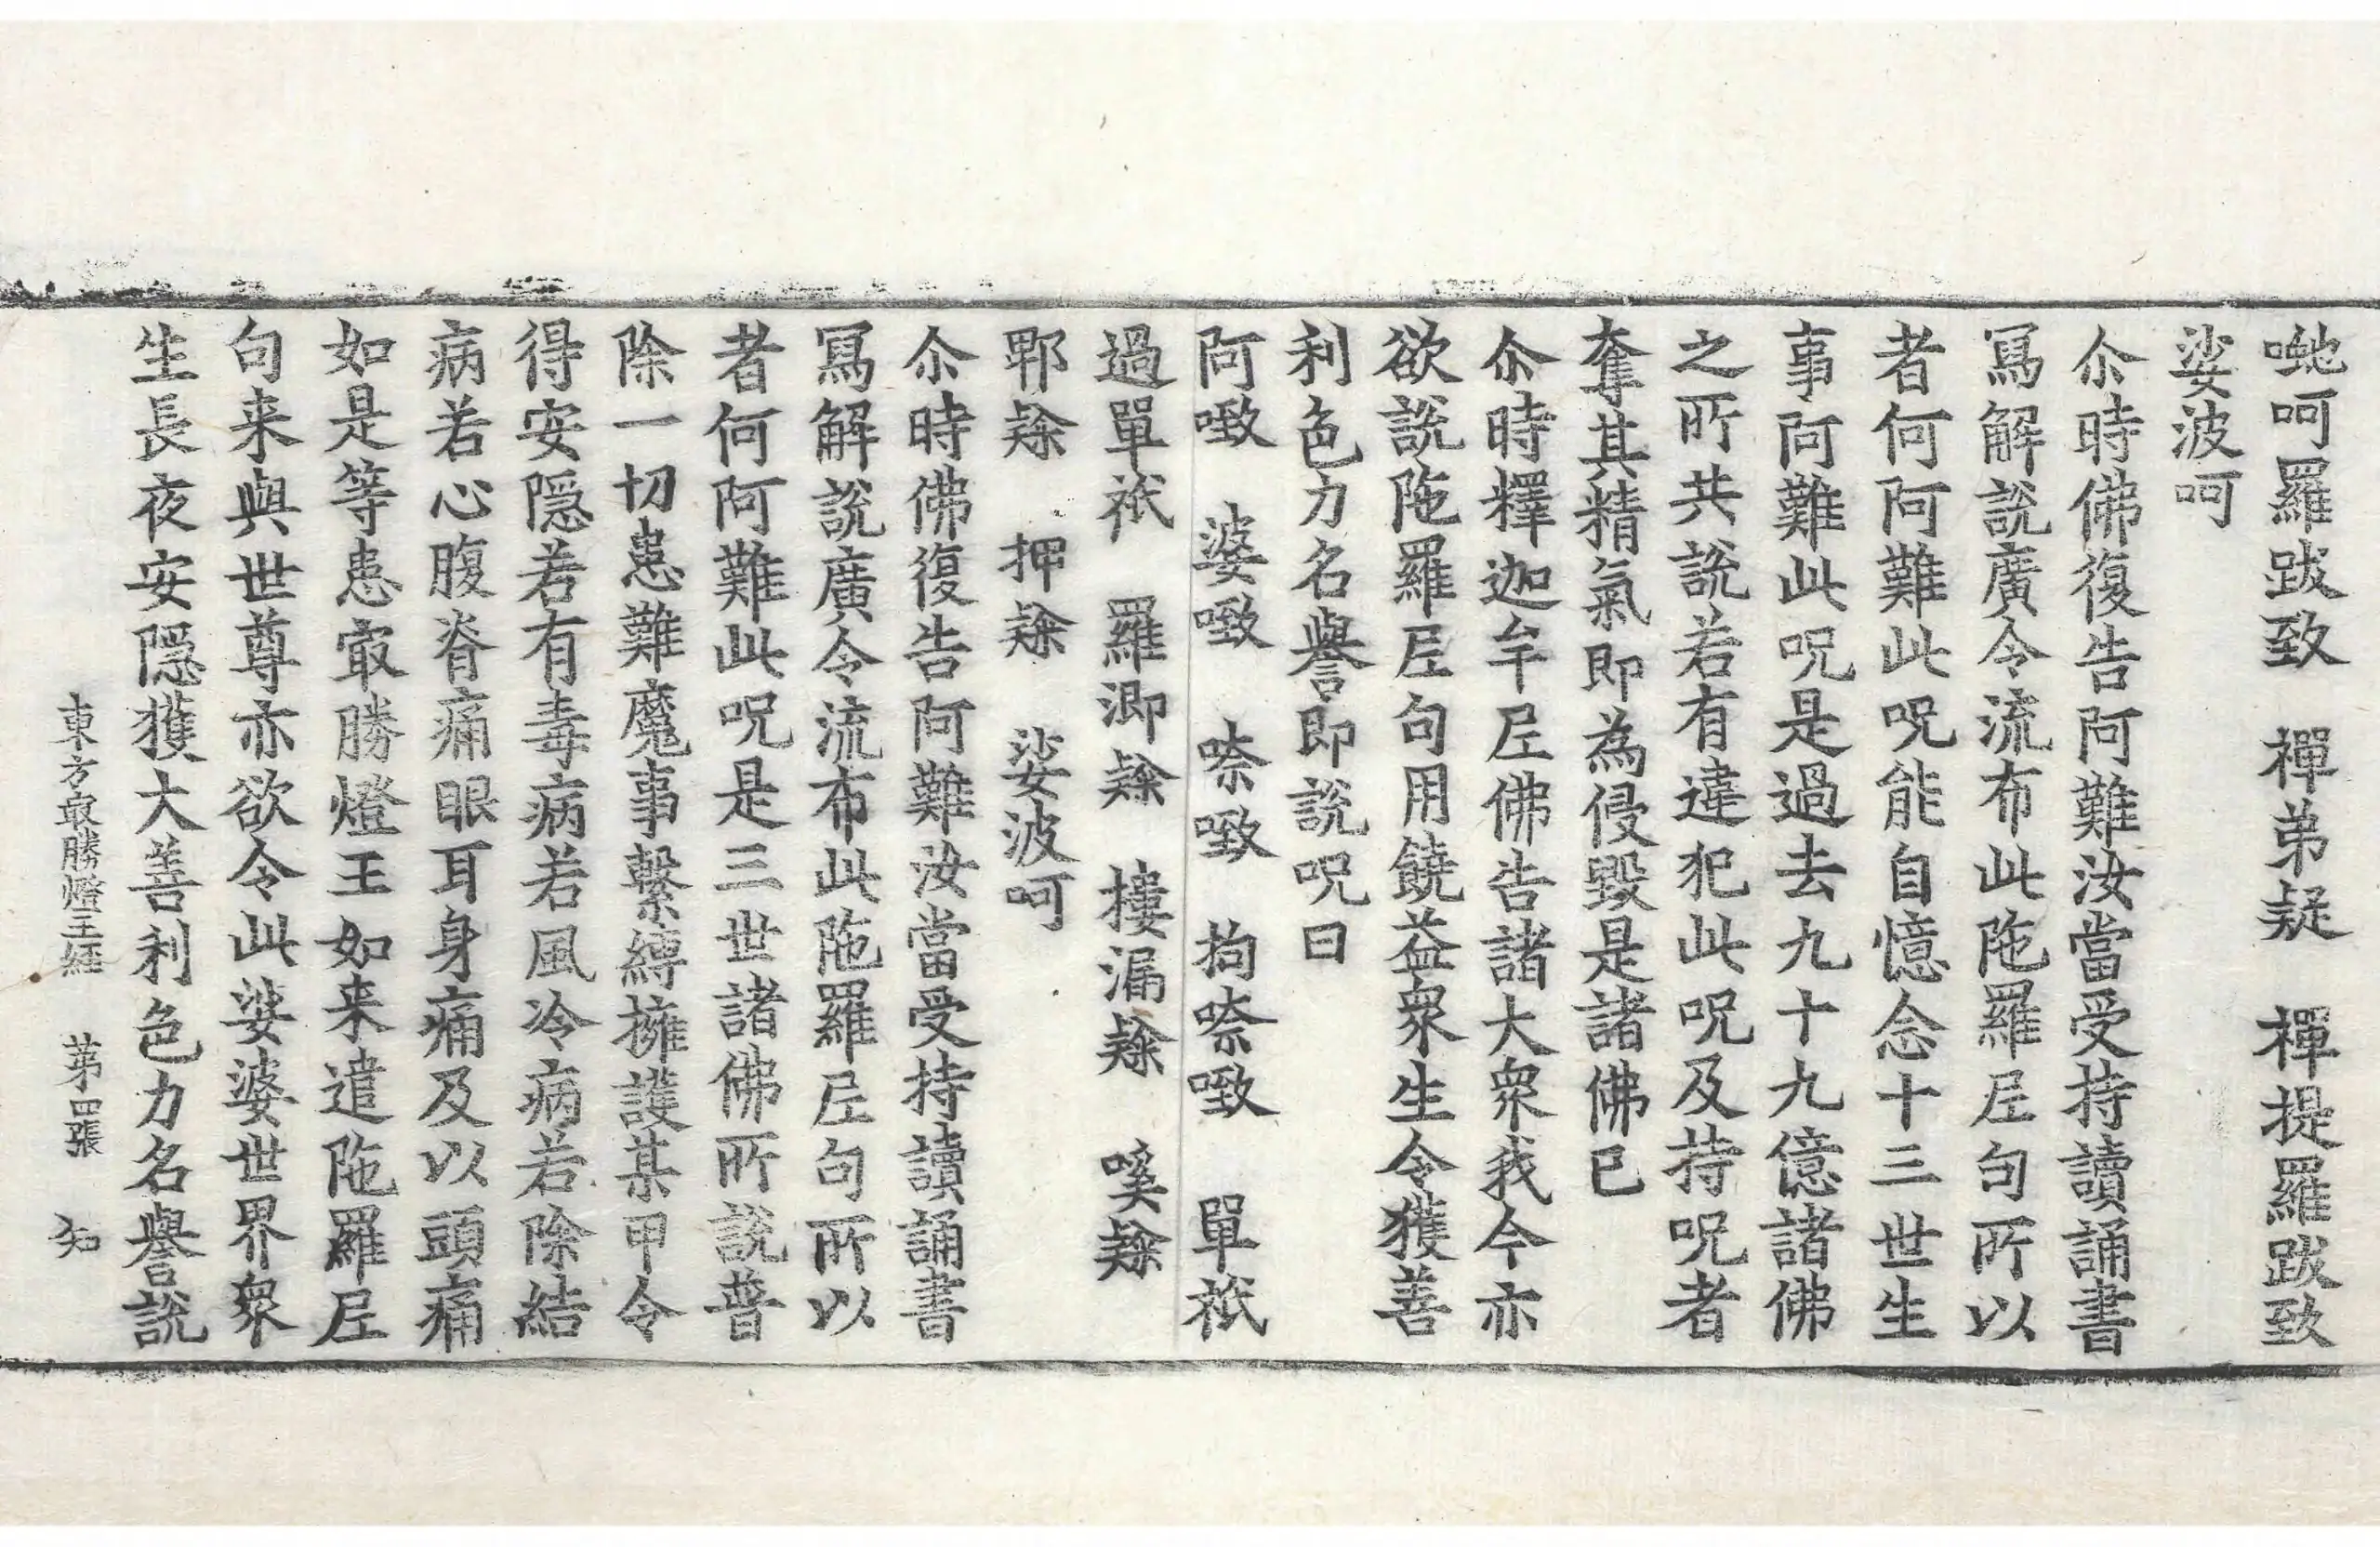 呲呵羅跋致　禪弟疑　禪提羅跋致
娑波呵
尒時佛復告阿難汝當受持讀誦書
寫解說廣令流布此陁羅𡰱句所以
者何阿難此呪能自憶念十三世生
事阿難此呪是過去九十九億諸佛
之所共說若有違犯此呪及持呪者
奪其精氣即為侵毀是諸佛已
尒時釋迦牟𡰱佛告諸大衆我今亦
欲說陁羅𡰱句用饒益衆生令獲善
利色力名譽即說呪曰
阿㗌　婆㗌　㗫㗌　拘㗫㗌　單祇
過單祇　羅㖡𨽻　摟漏𨽻　嘍𨽻
鄲𨽻　押𨽻　娑波呵
尒時佛復告阿難汝當受持讀誦書
寫解說廣令流布此陁羅𡰱句所以
者何阿難此呪是三世諸佛所說普
除一切患難魔事繫縛擁護某甲令
得安隱若有毒病若風冷病若除結
病若心腹脊痛眼耳身痛及以頭痛
如是等患㝡勝燈王如来遣陁羅𡰱
句来與世尊亦欲令此娑婆世界衆
生長夜安隱獲大善利色力名譽說
東方㝡勝燈王經　苐四張　知